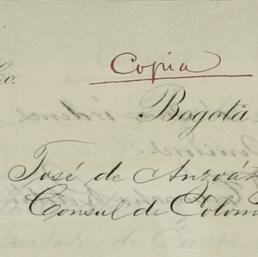 Copia
Co.
Bogotá
José de Anzoá
Consul de Colom